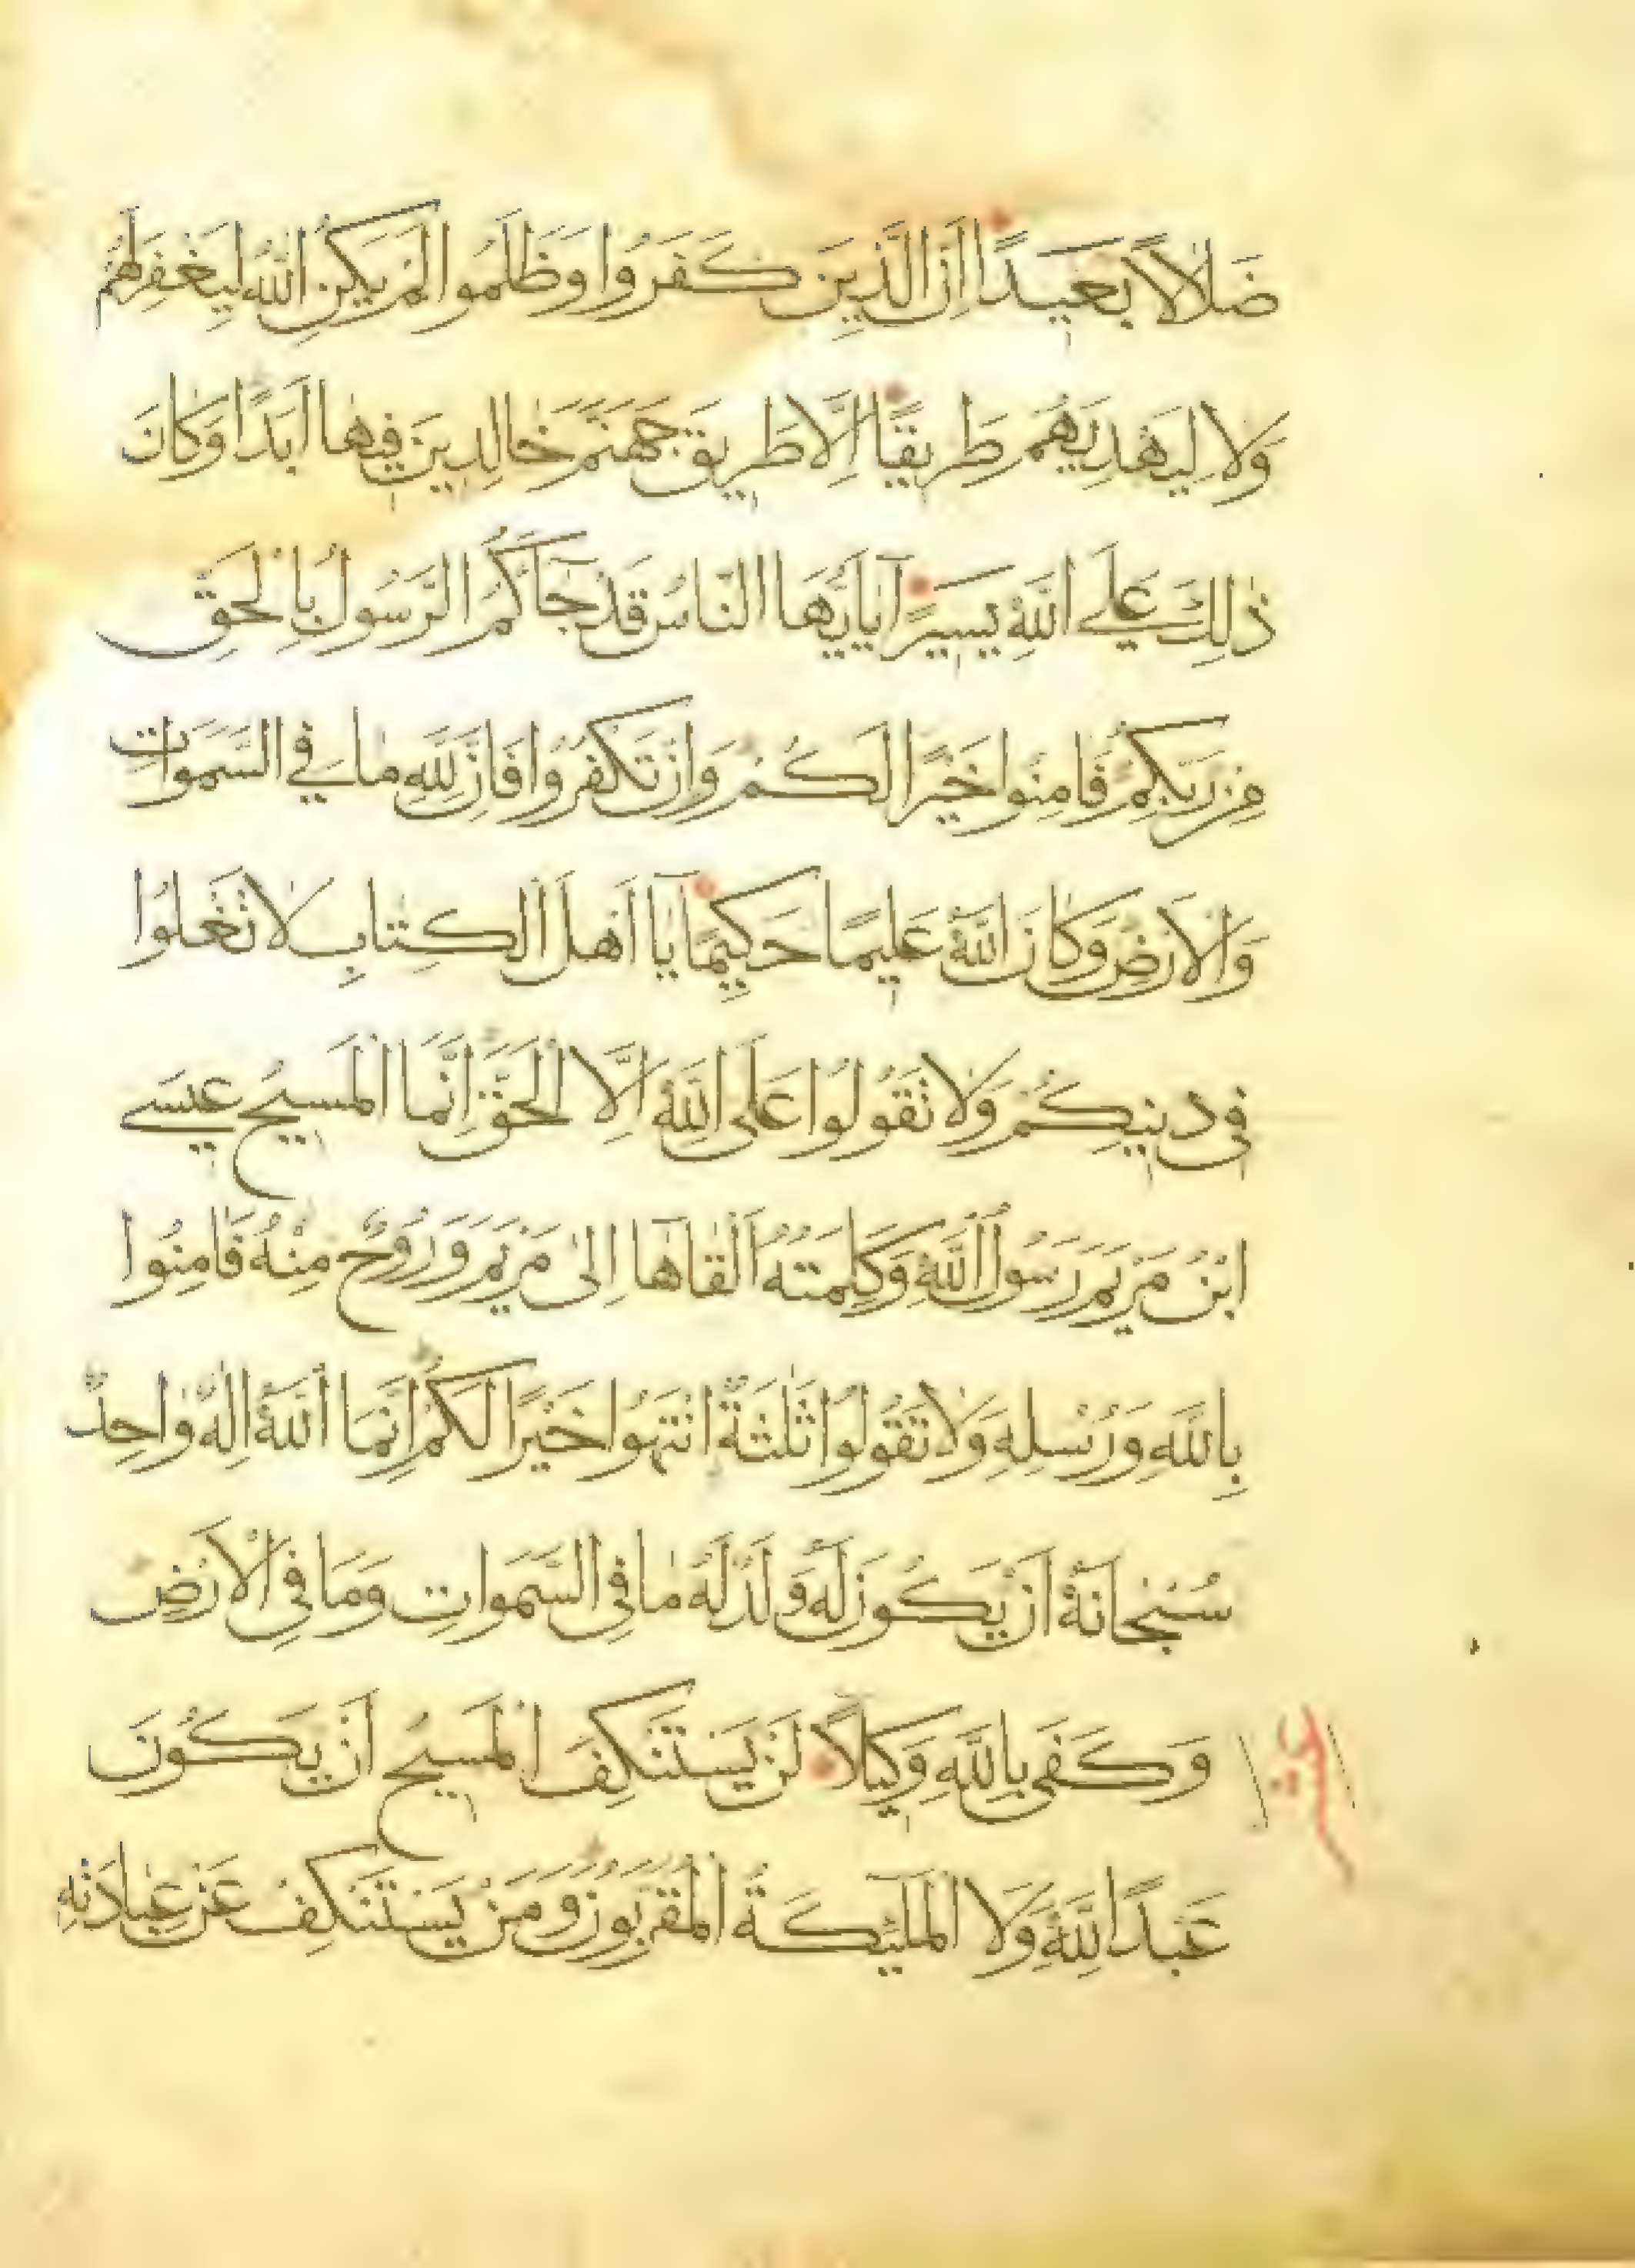 ضَلَالًا بَعِيدًا اِنَّ الَّذِينَ كَفَرُوا وَظَلَمُوا لَمْ يَكُنِ اللّٰهُ لِيَغْفِرَ لَهُمْ
وَلَا لِيَهْدِيَهُمْ طَرِيقًا اِلَّا طَرِيقَ جَهَنَّمَ خَالِدِينَ فِيهَا اَبَدًا وَكَانَ
ذٰلِكَ عَلَى اللّٰهِ يَسِيرًا يَا اَيُّهَا النَّاسُ قَدْ جَاَكُمُ الرَّسُولُ بِالْحَقِّ
مِنْ رَبِّكُمْ فَاٰمِنُوا خَيْرًا لَكُمْ وَاِنْ تَكْفُرُوا فَاِنَّ لِلّٰهِ مَا فِي السَّمٰوَاتِ
وَالْاَرْضِ وَكَانَ اللّٰهُ عَلِيمًا حَكِيمًا يَا اَهْلَ الْكِتَابِ لَا تَغْلُوا
فِي دِينِكُمْ وَلَا تَقُولُوا عَلَى اللّٰهِ اِلَّا الْحَقَّ اِنَّمَا الْمَسِيحُ عِيسَى
ابْنُ مَرْيَمَ رَسُولُ اللّٰهِ وَكَلِمَتُهُ اَلْقَاهَا اِلٰى مَرْيَمَ وَرُوحٌ مِنْهُ فَاٰمِنُوا
بِاللّٰهِ وَرُسُلِهِ وَلَا تَقُولُوا ثَلٰثَةٌ انْتَهُوا خَيْرًا لَكُمْ اِنَّمَا اللّٰهُ اِلٰهٌ وَاحِدٌ
سُبْحَانَهُ اَنْ يَكُونَ لَهُ وَلَدٌ لَهُ مَا فِي السَّمٰوَاتِ وَمَا فِي الْاَرْضِ
وَكَفَى بِاللّٰهِ وَكِيلًا لَنْ يَسْتَنْكِفَ الْمَسِيحُ اَنْ يَكُونَ
عَبْدًا لِلّٰهِ وَلَا الْمَلٰئِكَةُ الْمُقَرَّبُونَ وَمَنْ يَسْتَنْكِفْ عَنْ عِبَادَتِهِ